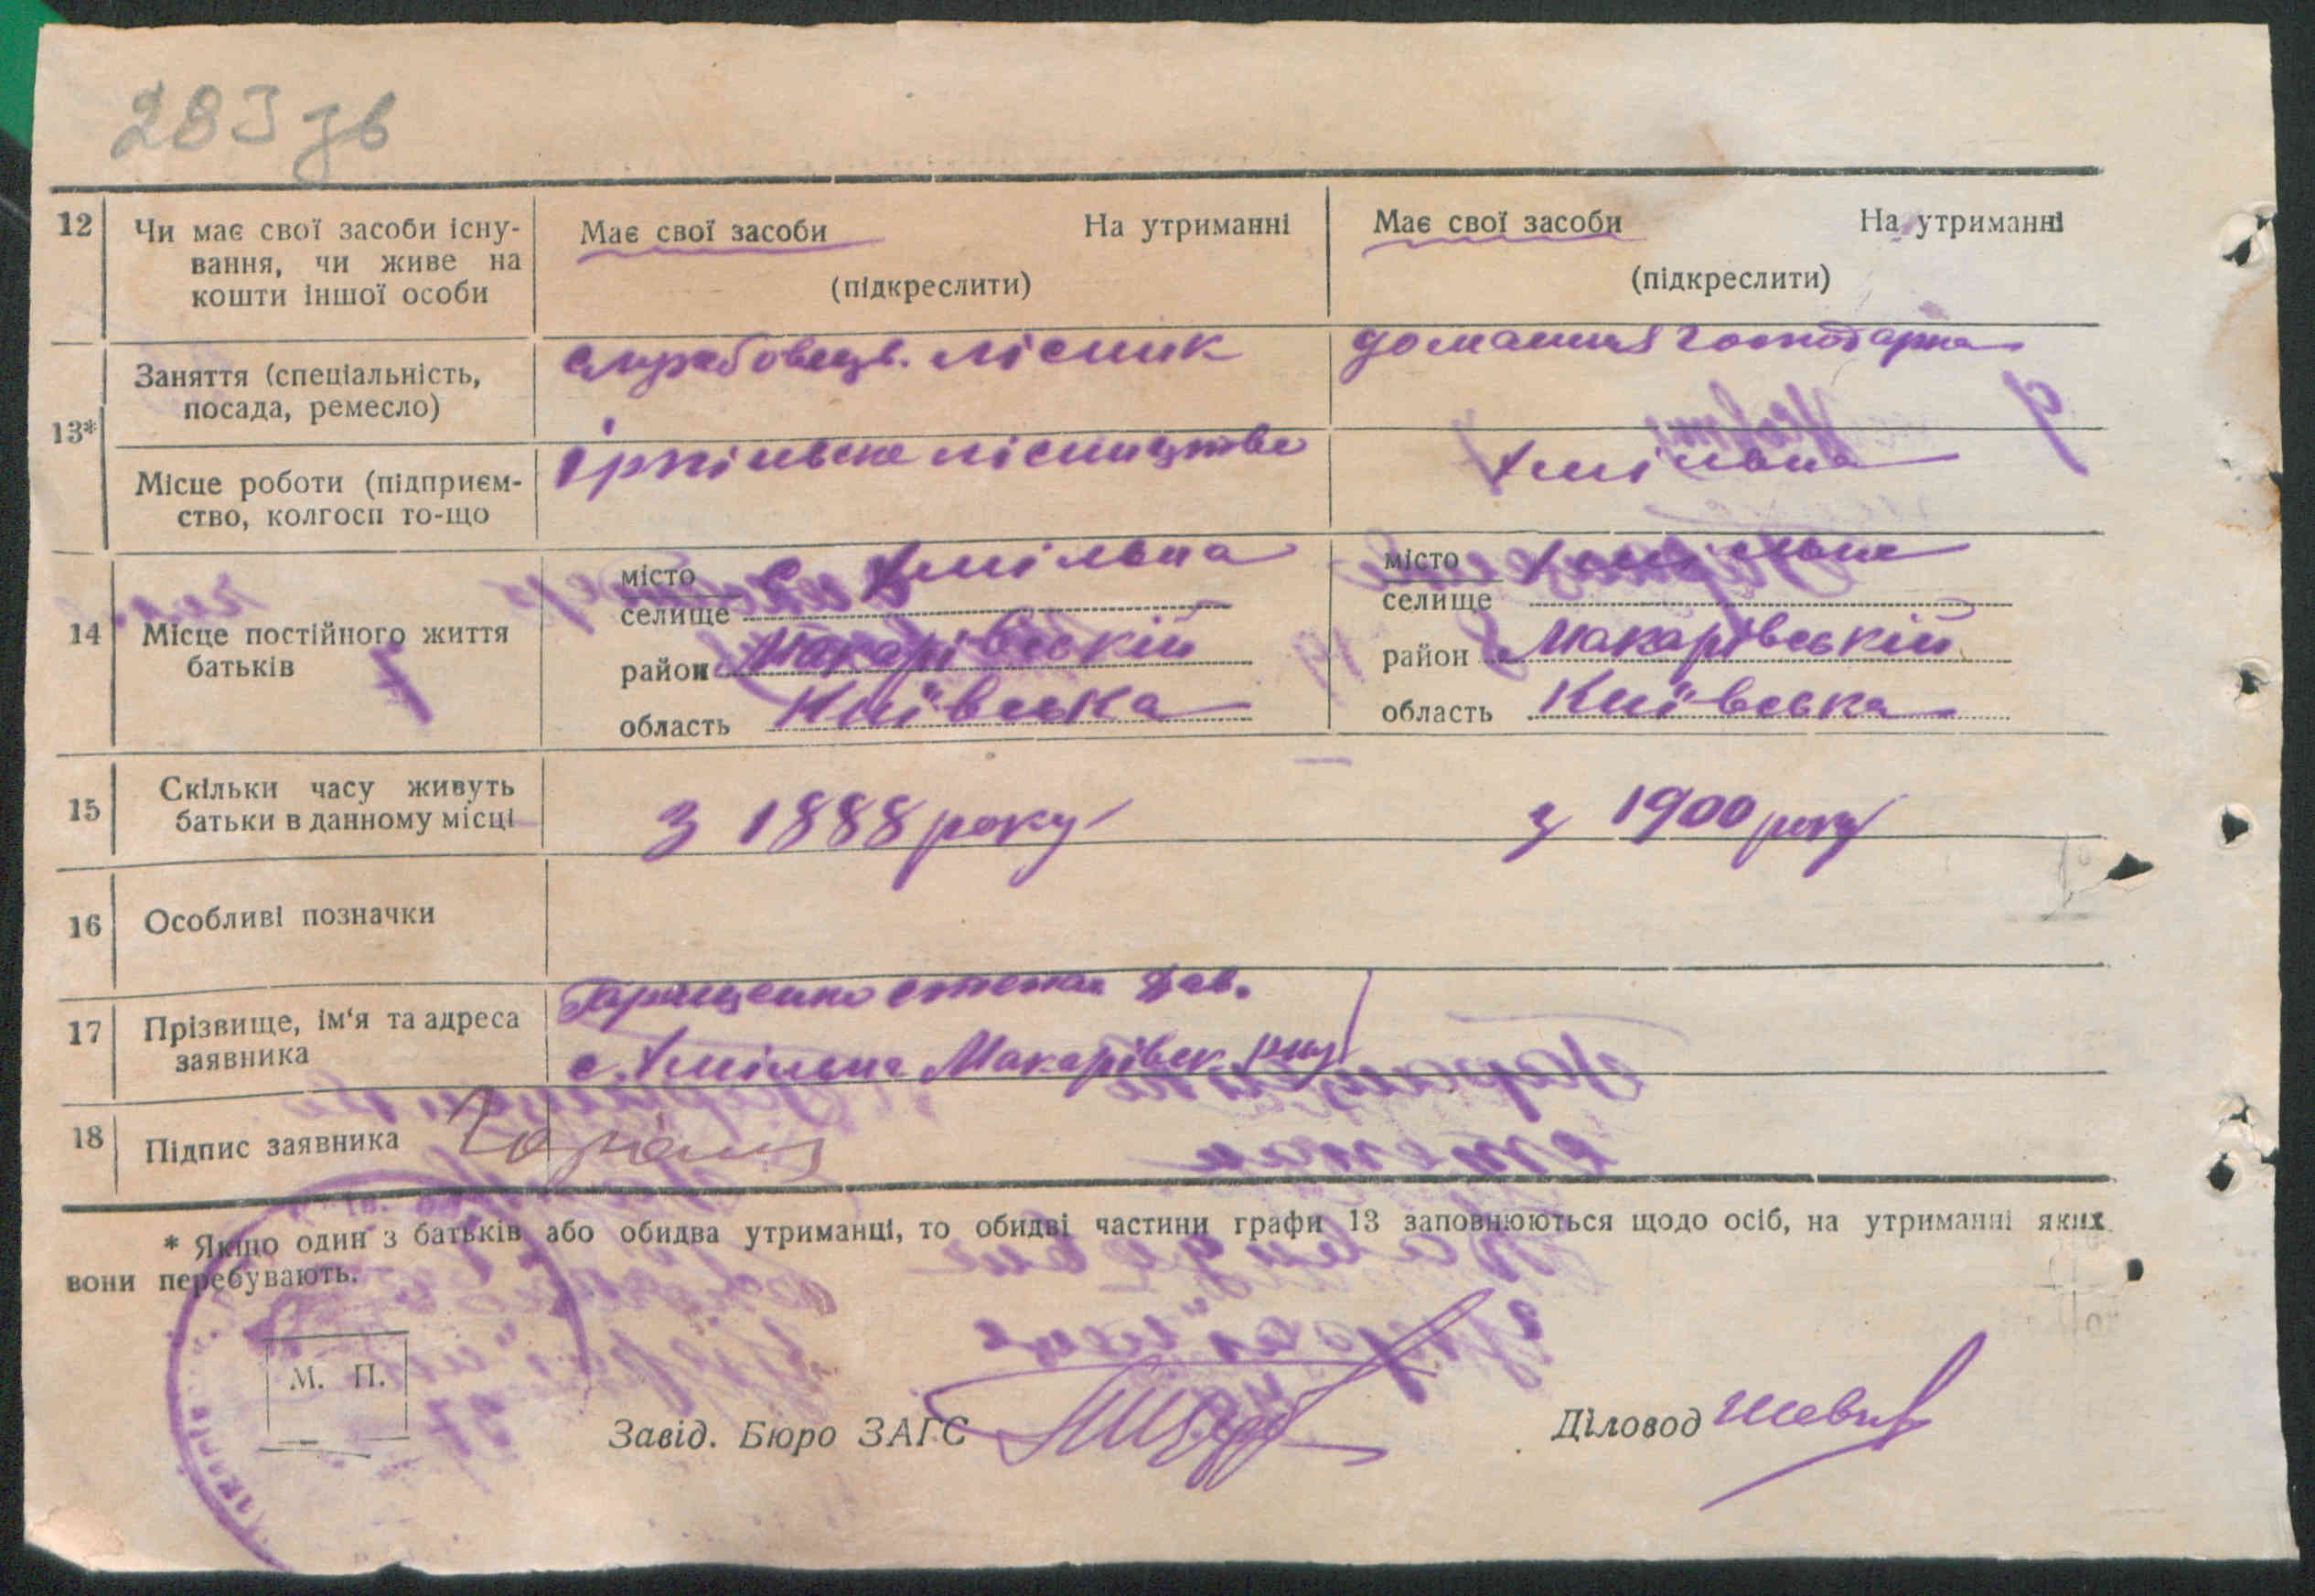 283 зв
12 Чи має свої засоби існу-
вання, чи живе на
кошти іншої особи
Має свої засоби На утриманні
(підкреслити)
Має свої засоби На утриманні
(підкреслити)
13*
Заняття (спеціальність,
посада, ремесло)
лісник
домашня
Місце роботи (підприєм-
ство, колгосп то-що
Ірпіньске лісництво
Хмільна
14 Місце постійного життя
батьків
місто с. Хмільна
селище
район Макарівській
область Київська
місто Хмільна
селище
район Макарівській
область Київська
15 Скільки часу живуть
батьки в данному місці
З 1888 року
з 1900 року
16 Особливі позначки
17 Прізвище, ім'я та адреса
заявника
Таращенко Степан Дав.
с. Хмільна Макарівск. р-ну
18 Підпис заявника
* Якщо один з батьків або обидва утриманці, то обидві частини графи 13 заповнюються щодо осіб, на утриманні яких
вони перебувають.
М. П.
Завід. Бюро ЗАГС
Діловод